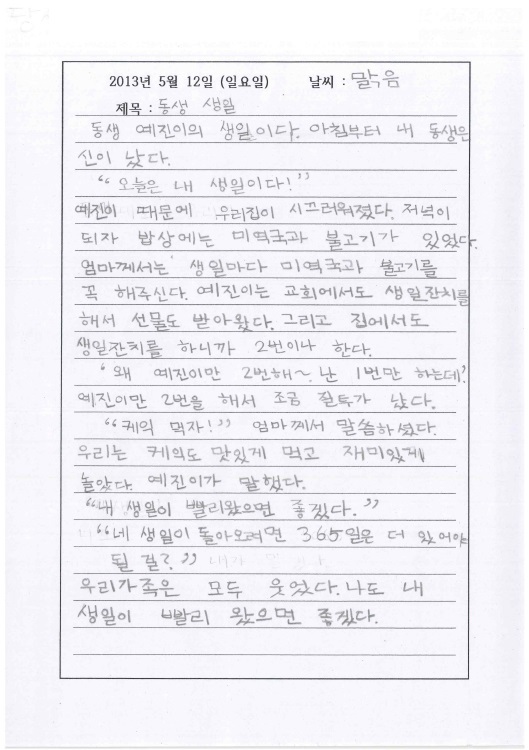 2013년 5월 12일 (일요일) 날씨 : 맑음
제목 : 동생 생일
동생 예진이의 생일이다. 아침부터 내 동생은
신이 났다.
“오늘은 내 생일이다!”
예진이 때문에 우리집이 시끄러워졌다. 저녁이
되자 밥상에는 미역국과 불고기가 있었다.
엄마께서는 생일마다 미역국과 불고기를
꼭 해주신다. 예진이는 교회에서도 생일잔치를
해서 선물도 받아왔다. 그리고 집에서도
생일잔치를 하니까 2번이나 한다.
‘왜 예진이만 2번해~ 난 1번만 하는데?
예진이만 2번을 해서 조금 질투가 났다.
“케익 먹자!” 엄마께서 말씀하셨다.
우리는 케익도 맛있게 먹고 재미있게
놀았다. 예진이가 말했다.
“내 생일이 빨리왔으면 좋겠다.”
“네 생일이 돌아오려면 365일은 더 있어야
될 걸?”
우리가족은 모두 웃었다. 나도 내
생일이 빨리 왔으면 좋겠다.